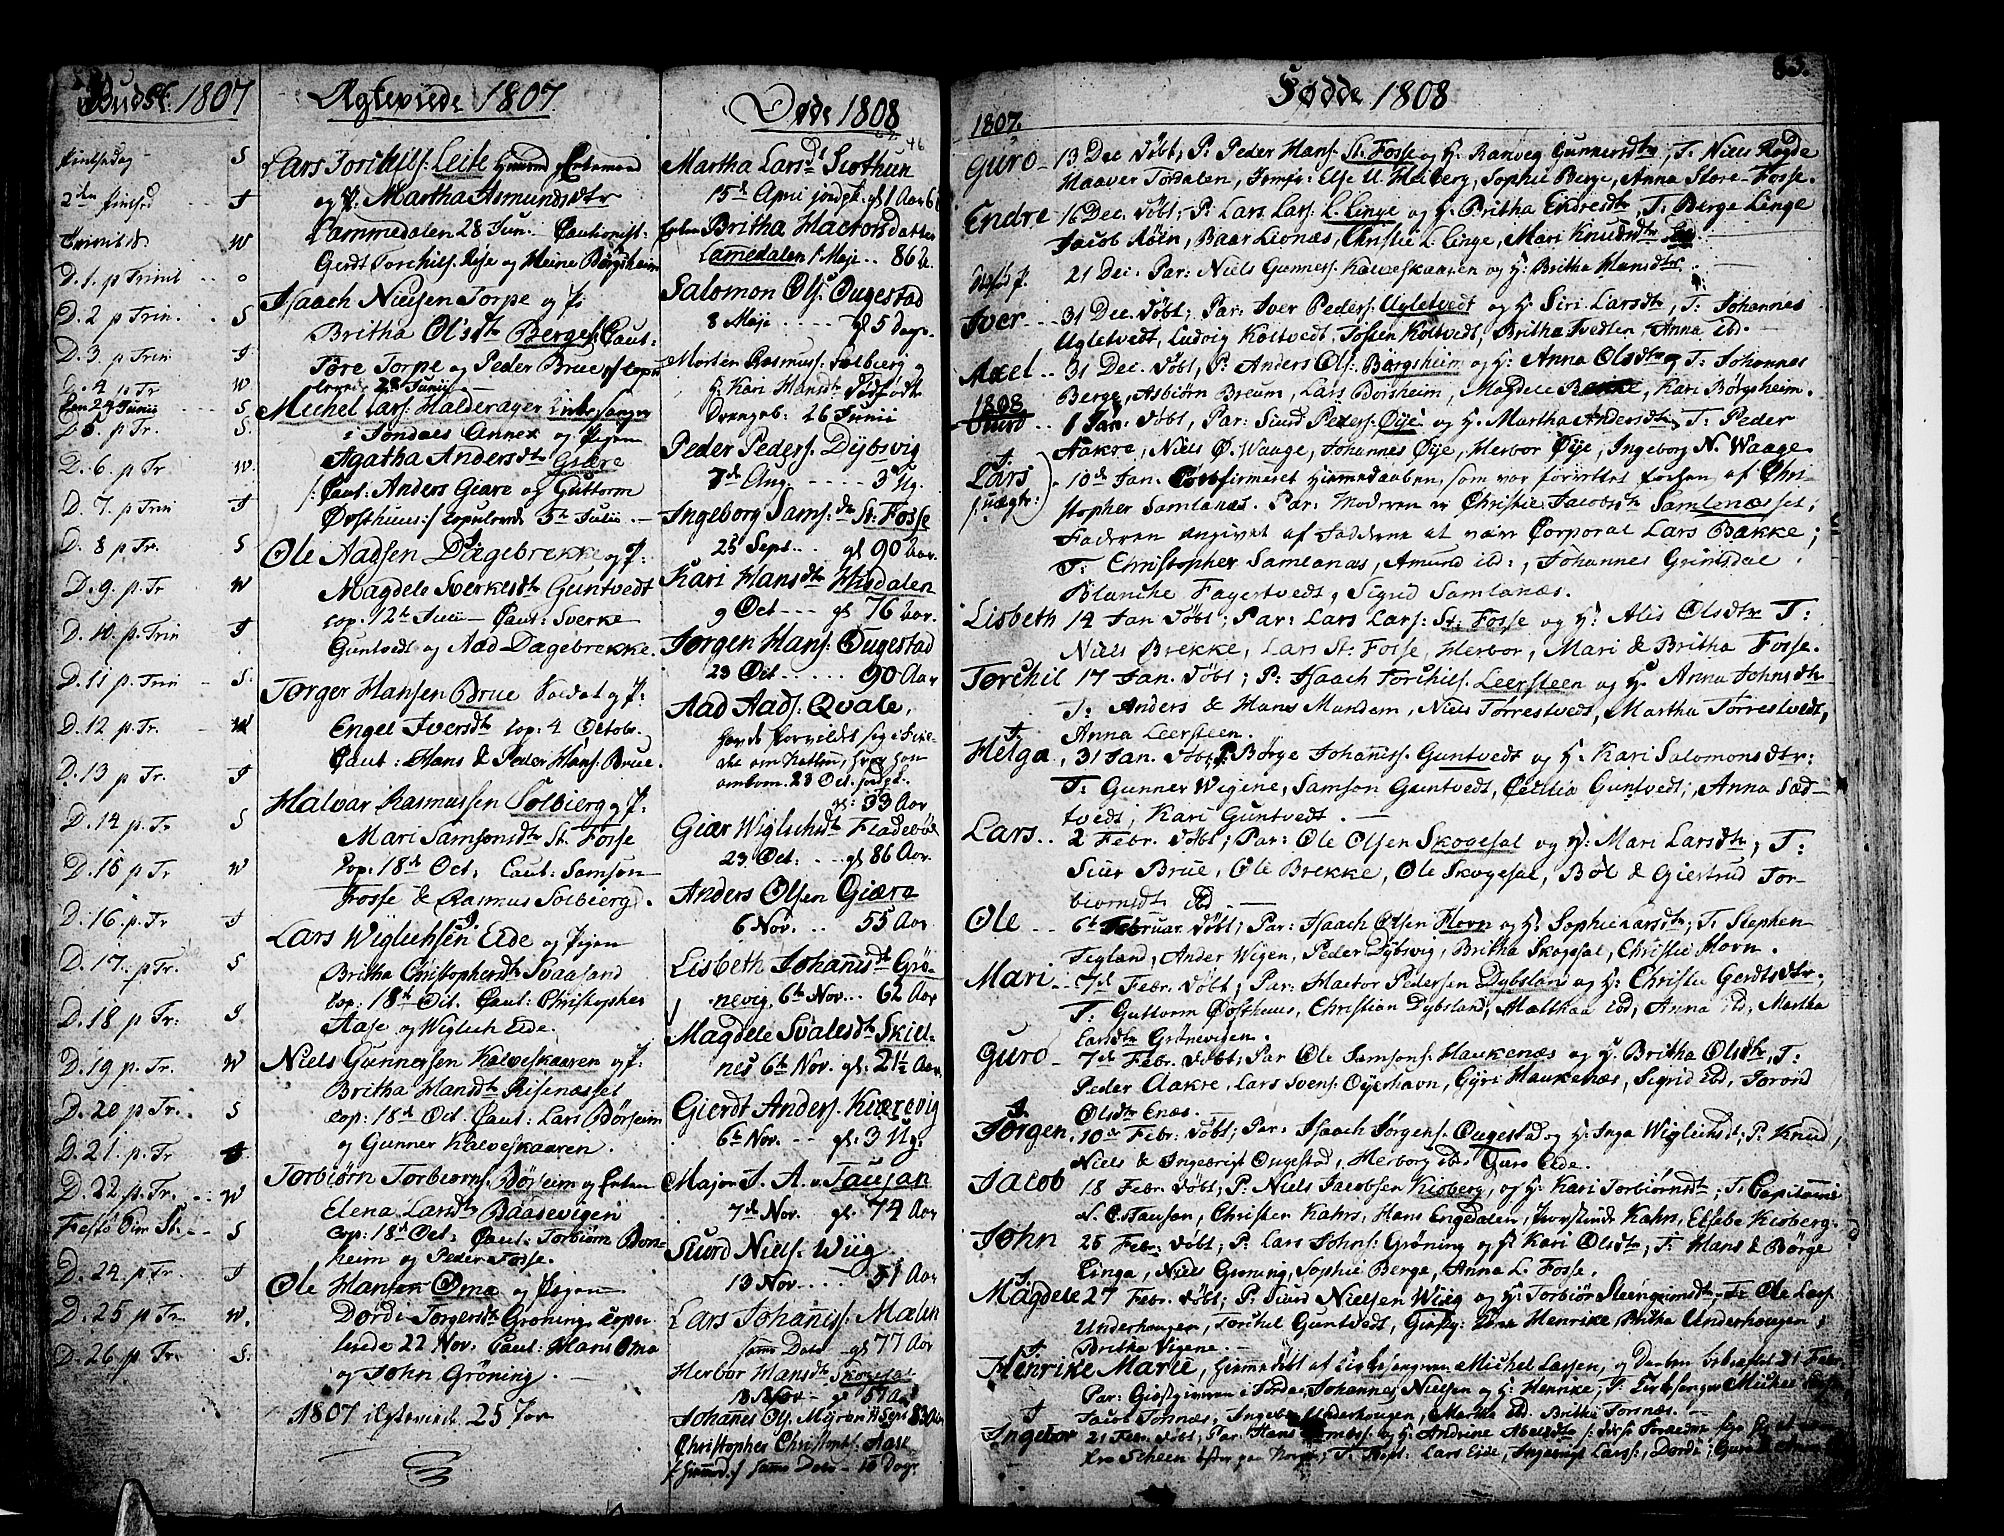 Gudst. 1807
Pintsedag S
2den Pintsed J
Trinit W
D. 1. p Trinit o
D. 2 p Trin. S
D. 3. p Trin J
D. 4 p Tr W
Den 24 Junii S
D. 5. p Tr. S.
D. 6. p Tr W.
D. 7. p Trin J
D. 8 p Tr. S
D. 9. p. Tr. W
D. 10. p. Trin J
D. 11 p. Trin S.
D. 12 p. Tr. W
D. 13 p Tr. J
D. 14 p. Tr S
D. 15 p. Tr W
D. 16. p. Tr J
D. 17. p Tr. S
D. 18 p Tr: J
D. 19. p. Tr. W
D. 20 p Tr. S
D. 21. p. Tr J
D. 22. p Tr. W
Festo Om St. S
D. 24 p Tr. J
D. 25 p Tr W.
D. 26 p Tr. S.
Ægteviede 1807
Lars Torchils: Leite
og P. Martha Asmundsdtr
Lammedalen 28 Jun. Cautionist:
Gerdt Torchils: og Heine Börgsheim
Isaach Nielsen Torpe og P:
Britha Olsdtr Berge: Caut:
Tore Torpe og Peder Brue
28 Junii
Michel Lars: Halderager Kirkesanger
i Jondals Annex og Pigen
Agatha Andersdtr Giære
/: Caut: Anders Giare og Guttorm
Østhuus :/ copulerede 5te Julii
Ole Aadsen Dagebrekke og P:
Magdele Sverkesdtr Guntvedt
cop. 12te Julii Caut: Sverke
Guntvedt og Aad Dagebrekke.
Torger Hansen Brue Soldat og P:
Engel Iversdtr cop: 4 Octob.
Caut: Hans & Peder Hans: Brue.
Halvar Rasmussen Solbierg og P:
Mari Samsonsdtr St. Fosse
Cop: 18de Oct. Caut: Samson
Fosse & Rasmus Solbierg.
Lars Wiglichsen Eide og Pigen
Britha Christophersdtr Svaasand
cop: 18de Oct. Caut: Christopher
Aase og Wiglich Eide.
Niels Gunnersen Kalveskaaren og P:
Britha Hansdtr Risenæsset
cop: 18de Oct Caut: Lars Börseim
og Gunner Kalveskaaren.
Torbiørn Torbiorns: Børseim og Enken
Elena Larsdtr Baasevigen
cop: 18de Oct. Caut: Torbiørn Børs
heim og Peder Fosse.
Ole Hansen Oma og Pigen
Dordi Torgersdtr Groning copu
lerede 22 Nov. Caut: Hans Oma
og John Gröning.
1807 Ægteviede 25 Par
Døde 1808
46
Martha Larsdtr Slothun
15de April gl 1 Aar
Enken Britha Hactorsdatter
Lamedalen 1 Maji 86 A.
Salomon Ols: Ougestad
8 Maji gl 5 Dage
Morten Rasmus: Solbierg og
H. Kari Hansdtr Dødfødt
Drengeb: 26 Junii
Peder Peders: Dÿbsvig
7de Aug. 3 Ug.
Ingeborg Sams:dtr St. Fosse
25 Sept. gl 90 Aar.
Kari Hansdtr Hisdalen
9 Oct gl 76 Aar.
Jørgen Hans: Ougestad
23 Oct 90 Aar
Aad Aads: Qvale,
havde forvildet sig i
om Natten, hvor han
omkom. 23 Oct. jordpt.
gl: 33 Aar
Giær Wiglichsdtr Fladebøe
23 Oct: gl 86 Aar.
Anders Olsen Giære
6 Nov. 55 Aar
Lisbeth Johannisdtr Grö-
nevig. 6te Nov. 62 Aar
Magdele Svalesdtr Skiel-
nes 6te Nov. gl: 2½ Aar
Gierdt Anders: Kiærevig
6te Nov. gl: 3 Ug:
Major J. A. v. Tausan
7de Nov. 74 Aar
Siurd Niels: Wiig
13 Nov. 51 Aar
Lars Johannis: Malun
samme Dato gl 77 Aar
Herbor Hansdtr Skogesal
13 Nov gl 57 Aar
Johannes Ols. Myran 11 Sept. 83 Aar
Christopher Christoph: Aase
samme Dato 10 Dage
Fødde 1808
83.
1807.
Guro 13 Dec Døbt; P: Peder Hans: St. Fosse og H. Ranveg Gunnersdtr; T. Niels Rogde
Haaver Tordalen, Jomfr: Else U. Heiberg, Sophie Berge, Anna Store-Fosse.
Endre 16 Dec. Døbt; P: Lars Lars: L. Linge og H. Britha Endresdtr; T: Berge Linge
Jacob Røen, Baar Lionæs, Christi L. Linge, Mari Knudsdtr
21 Dec. Par: Niels Gunners: Kalveskaaren og H: Britha Hansdtr.
Iver 31 Dec. Døbt, Par: Iver Peders: Ugletvedt og H: Siri Larsdtr, T: Johannes
Ugletvedt, Ludvig Koltvedt, Tosten Koltvedt, Britha Tvedten Anna ibd.
Axel 31 Dec. Døbt, P: Anders Ols: Börgsheim og H: Anna Olsdtr T: Johannes
Berge, Asbiørn Breum, Lars Börsheim, Magdele Bakke, Kari Börgsheim.
1808
Siurd 1 Jan: Døbt, Par: Siurd Peders: Øÿe og H. Martha Andersdtr, T: Peder
Aakre, Niels O. Waage, Johannes Øÿe, Herbor Øÿe, Ingeborg N. Waage
J. Lars (uægte) 10de Jan. Confirmeret Hiemmedaaben, som var forrettet af Chri-
stopher Samlanæs. Par: Moderen er Christie Jacobsdtr Samlenæsset;
Faderen angivet af Fadderne at være Corporal Lars Bakke;
T: Christopher Samlanæs, Amund ibd:, Johannes Grimsdal
Blanche Fagertvedt, Sigrid Samlanæs.
Lisbeth 14 Jan Døbt; Par: Lars Lars: St: Fosse og H: Alis Olsdtr T:
Niels Brekke, Lars St: Fosse, Herbor, Mari & Britha Fosse.
Torchil 17 Jan. Døbt; P: Isaach Torchils: Leersteen og H. Anna Johnsdtr
T: Anders & Hans Mundem, Niels Torrestvedt, Martha Torrestvedt,
Anna Leersteen.
J. Helga 31 Jan. Døbt; P. Börge Johannis: Guntvedt og H: Kari Salomonsdtr:
T: Gunner Wigene, Samson Guntvedt, Cecilia Guntvedt, Anna Sæd-
tvedt, Kari Guntvedt.
Lars 2 Febr. Døbt; Par: Ole Olsen Skogesal og H: Mari Larsdtr, T:
Siur Brue, Ole Brekke, Ole Skogesal, Böl & Giertrud Tor-
biornsdtr ibd.
Ole 6te Februar Døbt, Par: Isaach Olsen Horn og H: Sophie Larsdtr; T. Stephen
Fegland, Ander Wigen, Peder Dybsvig, Britha Skogesal, Christi Horn.
Mari 7de Febr. Døbt, Par: Hactor Pedersen Dybslan og H: Christi Gerdtsdtr,
T. Guttorm Østhuus, Christian Dybsland, Matthaa ibd, Anna ibd, Martha
Larsdtr Grønevigen.
Guro 7de Febr. Døbt; Par Ole Samsons: Haukenæs og H. Britha Olsdtr, T:
Peder Aakre, Lars Svens: Oÿerhavn, Gyri Haukenæs, Sigrid ibd, Torond
Olsdtr Enæs.
J. Jørgen 10de Febr: Døbt; Par: Isaach Jørgens: Ougestad og H: Inga Wiglichsdt; P. Knud,
Niels & Ingebrigt Ougestad, Herborg ibd, Guro Eide.
Jacob 18 Febr. Døbt; P: Niels Jacobsen Kioberg, og H. Kari Torbiörnsdtr; T: Capitaine
N. C. Tausan, Christen Kahrs, Hans Engedalen, Kahrs, Elsebe Kioberg.
John 25 Febr. Døbt; P: Lars Johns: Gröning og H. Kari Olsdtr, T. Hans & Börge
Linga, Niels Groning, Sophie Berge, Anna L. Fosse.
J. Magdele 27 Febr. Døbt; P: Siurd Nielsen Wiig og H: Torbiör Steengrimsdtr, T: Ole Lars:
Underhougen, Torchel Guntvedt, Henrike, Britha Underhougen,
Britha Vigene.
J. Henrike Marie, Hiemmedøbt af Kirkesangeren Michel Larsen, og Daaben bekræftet 21 Febr.
Par: Giæstgiveren i Jondal Johannes Nielsen og H: Henrike; T. Kirkesanger Michel
Jacob Torsnæs, Ingeb. Underhougen, Martha ibd. Britha Torsnæs.
J Ingebor 21 Febr. Døbt, Par: Hans og H: Andrine Abelsdtr
T: Lars Eide, Ingebrigt Lars:, Dordi,